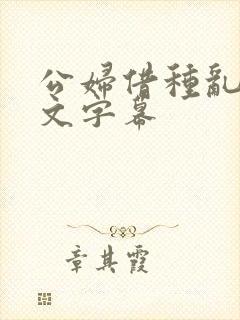 公婦借種亂
文字幕
章其霞